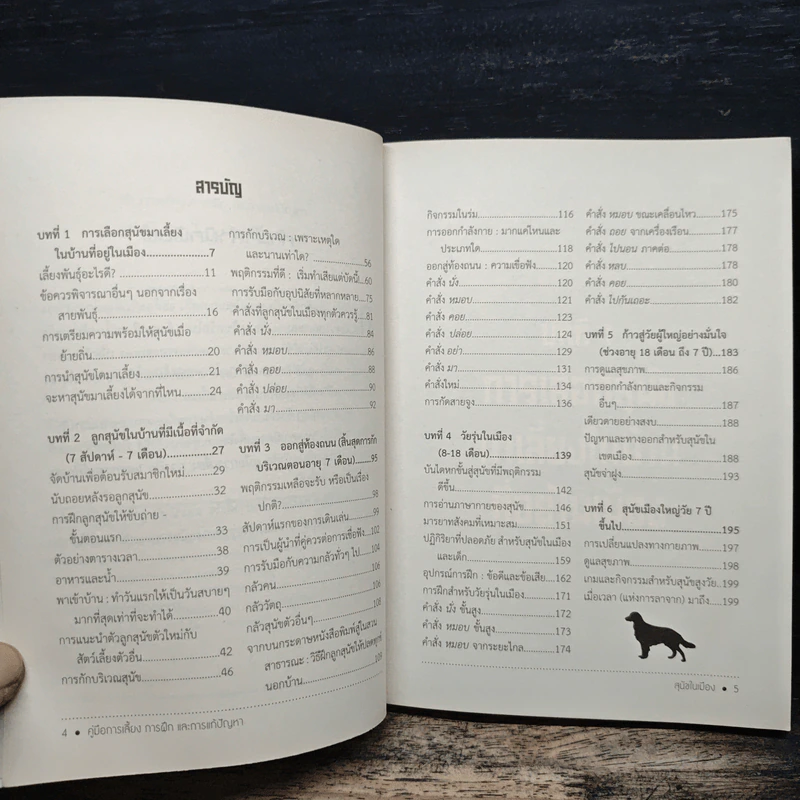 สารบัญ
บทที่ 1 การเลือกสุนัขมาเลี้ยง
ในบ้านที่อยู่ในเมือง....................7
เลี้ยงพันธุ์อะไรดี?......................11
ข้อควรพิจารณาอื่นๆ นอกจากเรื่อง
สายพันธุ์...........................16
การเตรียมความพร้อมให้สุนัขเมื่อ
ย้ายถิ่น.............................20
การนำสุนัขโตมาเลี้ยง..................21
จะหาสุนัขมาเลี้ยงได้จากที่ไหน........24
บทที่ 2 ลูกสุนัขในบ้านที่มีเนื้อที่จำกัด
(7 สัปดาห์ - 7 เดือน)...............27
จัดบ้านเพื่อต้อนรับสมาชิกใหม่........29
นับถอยหลังรอลูกสุนัข.................32
การฝึกลูกสุนัขให้ขับถ่าย -
ขั้นตอนแรก........................33
ตัวอย่างตารางเวลา.....................38
อาหารและน้ำ...........................39
พาเข้าบ้าน : ทำวันแรกให้เป็นวันสบายๆ
มากที่สุดเท่าที่จะทำได้............40
การแนะนำตัวลูกสุนัขตัวใหม่กับ
สัตว์เลี้ยงตัวอื่น...................42
การกักบริเวณสุนัข.....................46
การกักบริเวณ : เพราะเหตุใด
และนานเท่าใด?....................56
พฤติกรรมที่ดี : เริ่มทำเสียแต่บัดนี้...60
การรับมือกับอุปนิสัยที่หลากหลาย....75
คำสั่งที่ลูกสุนัขในเมืองทุกตัวควรรู้....81
คำสั่ง นั่ง...............................84
คำสั่ง หมอบ...........................86
คำสั่ง คอย.............................88
คำสั่ง ปล่อย...........................90
คำสั่ง มา...............................92
บทที่ 3 ออกสู่ท้องถนน (สิ้นสุดการกัก
บริเวณตอนอายุ 7 เดือน)............95
พฤติกรรมเหลือจะรับ หรือเป็นเรื่อง
ปกติ?...............................98
สัปดาห์แรกของการเดินเล่น............99
การเป็นผู้นำที่คู่ควรต่อการเชื่อฟัง....102
การรับมือกับความกลัวทั่วๆ ไป.......104
กลัวคน..................................106
กลัววัตถุ................................106
กลัวสุนัขตัวอื่นๆ.......................108
จากบนกระดาษหนังสือพิมพ์สู่ในสวน
สาธารณะ : วิธีฝึกลูกสุนัขให้ปลดทุกข์
นอกบ้าน............................109
4 ● คู่มือการเลี้ยง การฝึก และการแก้ปัญหา
กิจกรรมในร่ม...........................116
การออกกำลังกาย : มากแค่ไหนและ
ประเภทใด..........................118
ออกสู่ท้องถนน : ความเชื่อฟัง.........120
คำสั่ง นั่ง...............................120
คำสั่ง หมอบ...........................121
คำสั่ง คอย.............................123
คำสั่ง ปล่อย...........................124
คำสั่ง อย่า.............................129
คำสั่ง มา...............................131
คำสั่งใหม่..............................134
การกัดสายจูง..........................136
บทที่ 4 วัยรุ่นในเมือง
(8-18 เดือน).......................139
บันไดหกขั้นสู่สุนัขที่มีพฤติกรรม
ดีขึ้น................................142
การอ่านภาษากายของสุนัข............146
มารยาทสังคมที่เหมาะสม..............151
ปฏิกิริยาที่ปลอดภัย สำหรับสุนัขในเมือง
และเด็ก.............................159
อุปกรณ์การฝึก : ข้อดีและข้อเสีย.....162
การฝึกสำหรับวัยรุ่นในเมือง...........171
คำสั่ง นั่ง ขั้นสูง.......................172
คำสั่ง หมอบ ขั้นสูง...................173
คำสั่ง หมอบ จากระยะไกล............174
คำสั่ง หมอบ ขณะเคลื่อนไหว.........175
คำสั่ง ถอย จากเครื่องเรือน............177
คำสั่ง ไปนอน ภาคต่อ.................178
คำสั่ง หลบ.............................178
คำสั่ง คอย.............................180
คำสั่ง ไปกันเถอะ......................182
บทที่ 5 ก้าวสู่วัยผู้ใหญ่อย่างมั่นใจ
(ช่วงอายุ 18 เดือน ถึง 7 ปี)...183
การดูแลสุขภาพ........................186
การออกกำลังกายและกิจกรรม
อื่นๆ................................187
เดียวดายอย่างสงบ.....................188
ปัญหาและทางออกสำหรับสุนัขใน
เขตเมือง............................188
สุนัขจ่าฝูง..............................193
บทที่ 6 สุนัขเมืองใหญ่วัย 7 ปี
ขึ้นไป..............................195
การเปลี่ยนแปลงทางกายภาพ.........197
ดูแลสุขภาพ............................198
เกมและกิจกรรมสำหรับสุนัขสูงวัย...199
เมื่อเวลา (แห่งการลาจาก) มาถึง.....199
สุนัขในเมือง ● 5